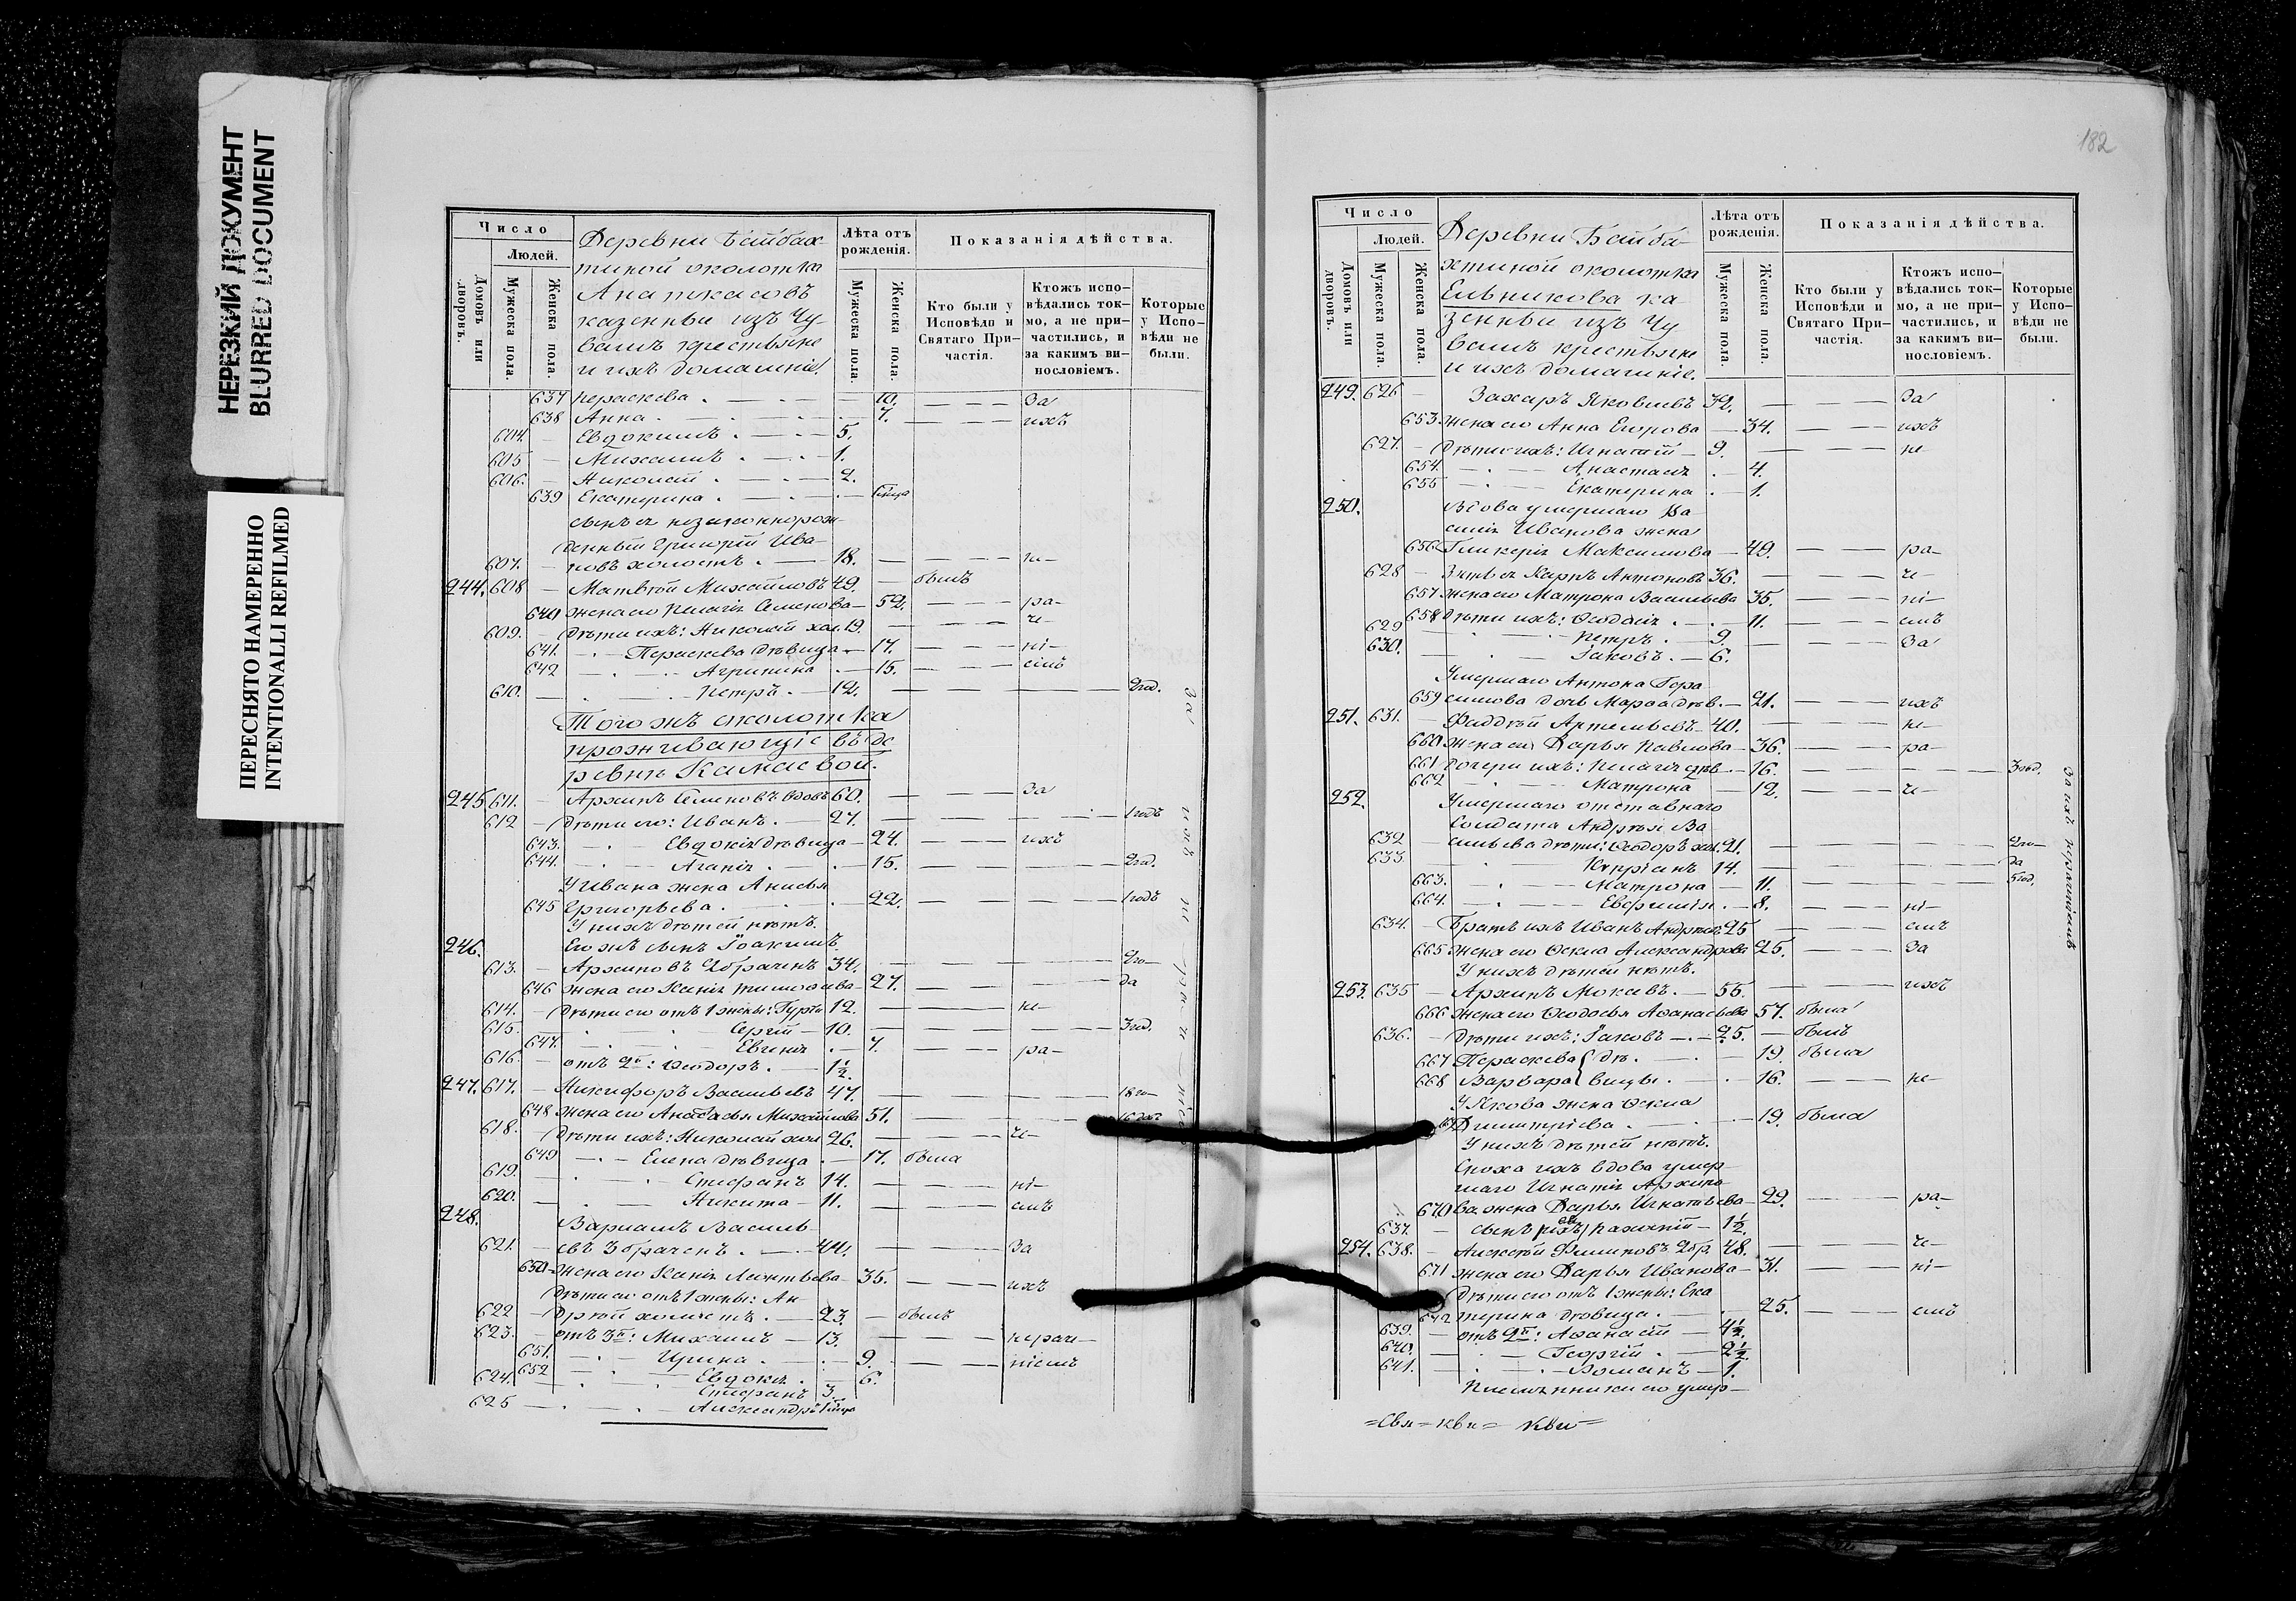 НЕРЕЗКИЙ ДОКУМЕНТ
BLURRED DOCUMENT
ПЕРЕСНЯТО НАМЕРЕННО
INTENTIONALLI REFILMED
Число
Людей.
Домовъ или дворовъ.
Мужеска пола.
Женска пола.
Деревни Батбах-
тиной околотка
Анаткасовъ
казенные изъ Чу-
вашъ крестьяне
и ихъ домашніе.
Лѣта отъ рожденія.
Мужеска пола.
Женска пола.
Показанія дѣйства.
Кто были у Исповѣди и Святаго При-частія.
Ктожъ испо-вѣдались ток-мо, а не при-частились, и за какимъ ви-нословіемъ.
Которые у Испо-вѣди не были.
637 Параскева 10. За
638 Анна 7. ихъ
604. Евдокимъ 5.
605 Михаилъ 1.
606. Николай 2.
639 Екатерина
сынъ ея незаконнорож-
денный Григорій Ива-
607. новъ холостъ 18. не-
244. 608 Матвей Михайловъ 49. былъ
640 жена его Пелагія Семенова 52. ра-
609. дѣти ихъ: Николай хол. 19. че-
641. Параскева дѣвица 17. ні-
642 Агрипина 15. емъ
610. Петръ 12. 2год.
Того жъ околотка
проживающіе въ де
ревнѣ Камаевой.
245 611. Архипъ Семеновъ вдовъ 60. За
612 дѣти его: Иванъ 27. 1годъ
643. Евдокія дѣвица 24. ихъ
644. Агапія 15. 2год.
У Ивана жена Анисья
645 Григорьева 22. 1годъ
У нихъ дѣтей нѣтъ.
246. Его жъ сынъ Іоакимъ
613. Архиповъ 2браченъ 34. 2го-
646 жена его Ксенія Тимофеева 27. да
614. Дѣти его отъ 1 жены: Гурій 12. не-
615. Сергій 10. 3год.
647. Евгенія 7. ра-
616. отъ 2й: Ѳеодоръ 1½.
247. 617. Никифоръ Васильевъ 47. 1го-
648 жена его Анастасья Михайлова 51.
618. дѣти ихъ: Николай хол 26. че-
649 Елена дѣвица 17. была
619. Стефанъ 14. ні-
620. Никита 11. емъ
248. Варлаамъ Василь-
621. евъ 3браченъ 44. За
650 жена его Ксенія Леонтьева 35. ихъ
дѣти его отъ 1 жены: Ан
622 дрей холостъ 23. былъ
623. отъ 3й: Михаилъ 13. нераче-
651. Ирина 9. ніемъ
652 Евдокія 6.
624. Стефанъ 3.
625 Александръ
За ихъ не-ра-че-ніемъ
182
Число
Людей.
Домовъ или дворовъ.
Мужеска пола.
Женска пола.
Деревни Батба-
хтиной околотка
Ельникова ка-
зенные изъ Чу
вашъ крестьяне
и ихъ домашніе.
Лѣта отъ рожденія.
Мужеска пола.
Женска пола.
Показанія дѣйства.
Кто были у Исповѣди и Святаго При-частія.
Ктожъ испо-вѣдались ток-мо, а не при-частились, и за какимъ ви-нословіемъ.
Которые у Испо-вѣди не были.
249. 626 Захаръ Яковлевъ 32. За
653. жена его Анна Егорова 34. ихъ
627. дѣти ихъ: Игнатій 9. не
654. Анастасія 4.
655 Екатерина 1.
250. Вдова умершаго Ва
силія Иванова жена
656 Гликерія Максимова 49. ра-
628 Зять ея Карпъ Антоновъ 36. че-
657 жена его Матрона Васильева 35. ні-
658 дѣти ихъ: Ѳеодосія 11. емъ
629 Петръ 9. За
630. Іаковъ 6.
Умершаго Антона Гера
659 симова дочь Марѳа дѣв. 21. ихъ
251. 631. Фаддей Артемьевъ 40. не-
660 жена его Дарья Павлова 36. ра-
661 дочери ихъ: Пелагія дѣв 16. 3год.
662 Матрона 12. че-
252. Умершаго отставнаго
Солдата Андрея Ва
632 сильева дѣти: Ѳеодоръ хол. 21. 2го-
633 Кипріанъ 14. да
663. Матрона 11. 5год.
664. Евфимія 8. ні-
634. Братъ ихъ Иванъ Андреевъ 25 емъ
665 жена его Ѳекла Александрова 25. За
У нихъ дѣтей нѣтъ.
253. 635 Архипъ Мокѣевъ 55. ихъ
666 жена его Ѳеодосья Аѳанасьева 57. была
636. дѣти ихъ: Іаковъ 25. былъ
667 Параскева дѣ- 19. была
668 Варвара вицы 16. не-
У Якова жена Ѳекла
Димитріева 19. была
У нихъ дѣтей нѣтъ.
Сноха ихъ вдова умер-
шаго Игнатія Архипо
670 ва жена Дарья Игнатьева 29. ра-
637. сынъ ея 1½.
254. 638. Алексѣй Филиповъ 2бр. 48. че-
671 жена его Дарья Иванова 31. ні-
дѣти его отъ 1 жены: Ека
672 терина дѣвица 25. емъ
639. отъ 2й: Аѳанасій 4½.
640. Георгій 2½
641. Романъ 1.
Племянники его умер-
За ихъ нераченіемъ